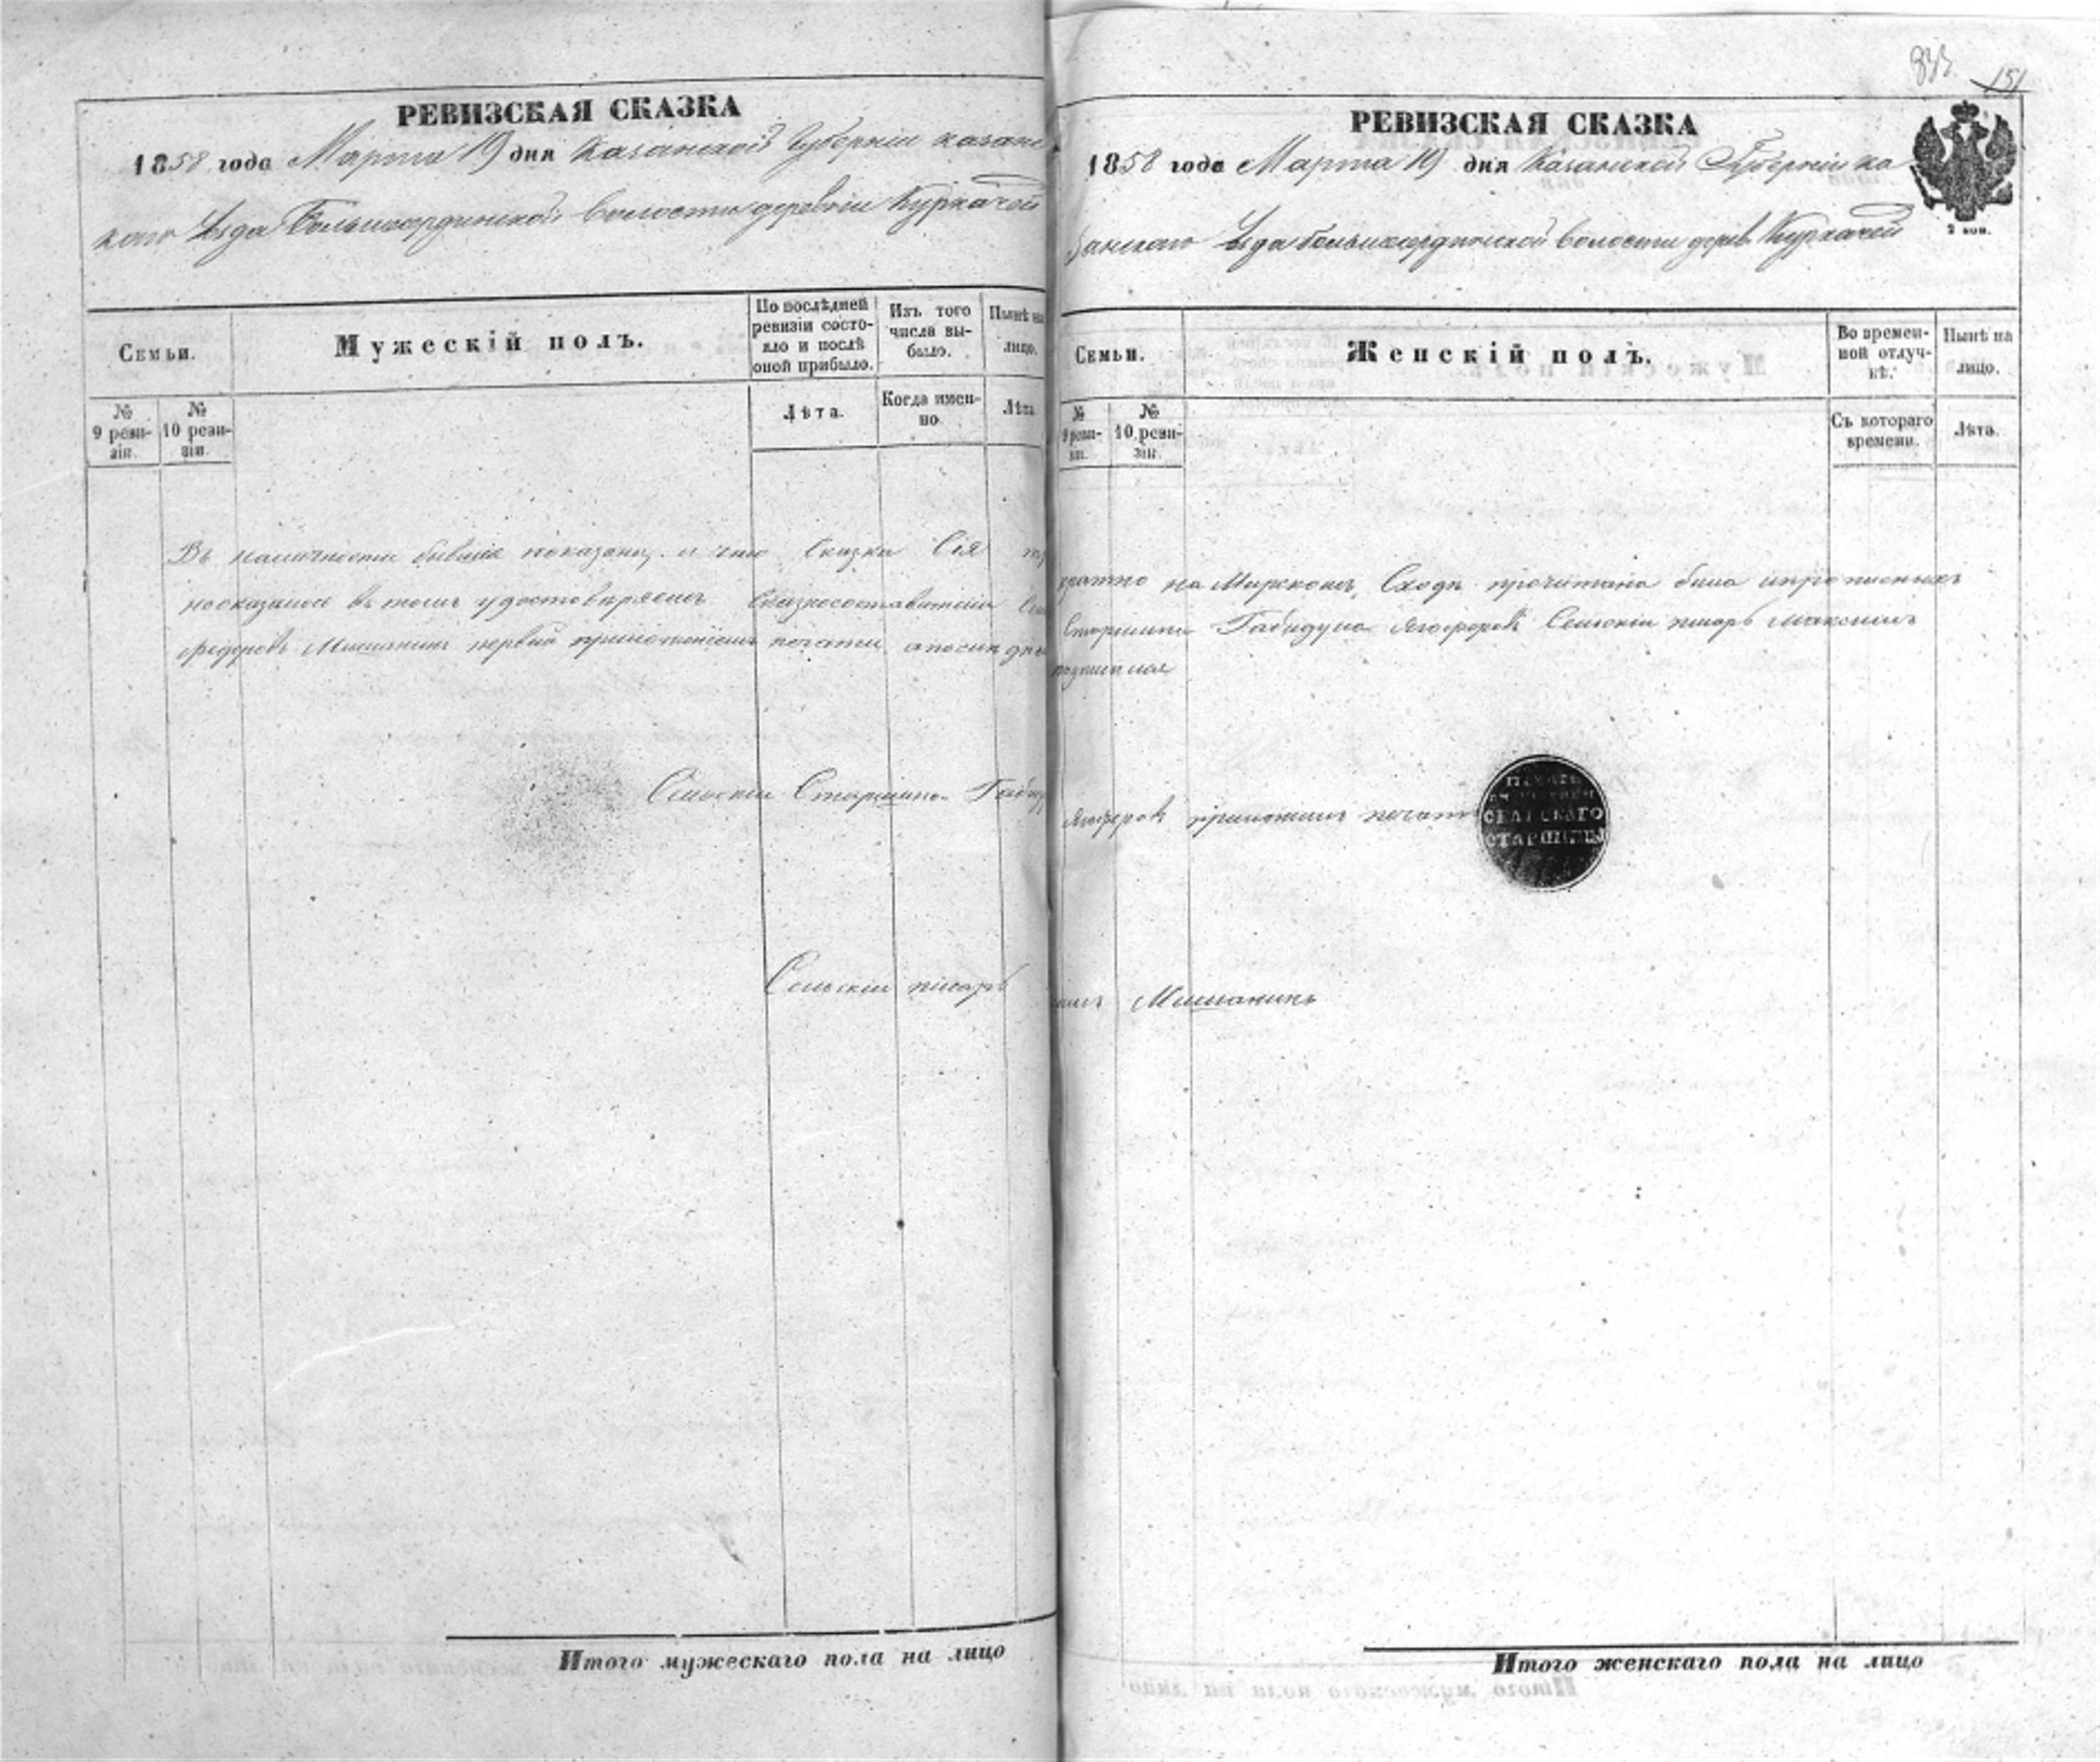 РЕВИЗСКАЯ СКАЗКА
1858 года Марта 19 дня Казанской Губернии казанс
каго Уезда Большеординской волости деревни Куркачей
Семьи.
Мужескій полъ.
По послѣдней ревизіи состо-
яло и послѣ оной прибыло.
Изъ того числа вы-
было.
Нынѣ на лицо.
№ 9 реви-
зіи.
№ 10 реви-
зіи.
Лѣта.
Когда имен-
но
Лѣта
Въ наличности бывшіе показаны и что Сказка Сія
в томъ удостовѣряемъ
федоровъ Мишанинъ первый приложеніемъ печати
Сельскіи Старшина Габиду
Сельскіи писарь
Итого мужескаго пола на лицо
833
151
РЕВИЗСКАЯ СКАЗКА
1858 года Марта 19 дня Казанской Губерніи ка
занскаго Уезда большеординской волости дерев Куркачей
2 коп.
Семьи.
Женскій полъ.
Во времен-
ной отлуч-
кѣ.
Нынѣ на лицо.
№ 9 реви-
зіи.
№ 10 реви-
зіи.
Съ котораго времени.
Лѣта.
кратно на Мирскомъ Сходѣ прочитана была
Старшина Габидула Ягоферовъ Сельскіи писарь Максимъ
подписался
Ягоферовъ приложилъ печать
ПЕЧАТЬ
СЕЛЬСКАГО
СТАРШИНЫ
Мишанинъ
Итого женскаго пола на лицо